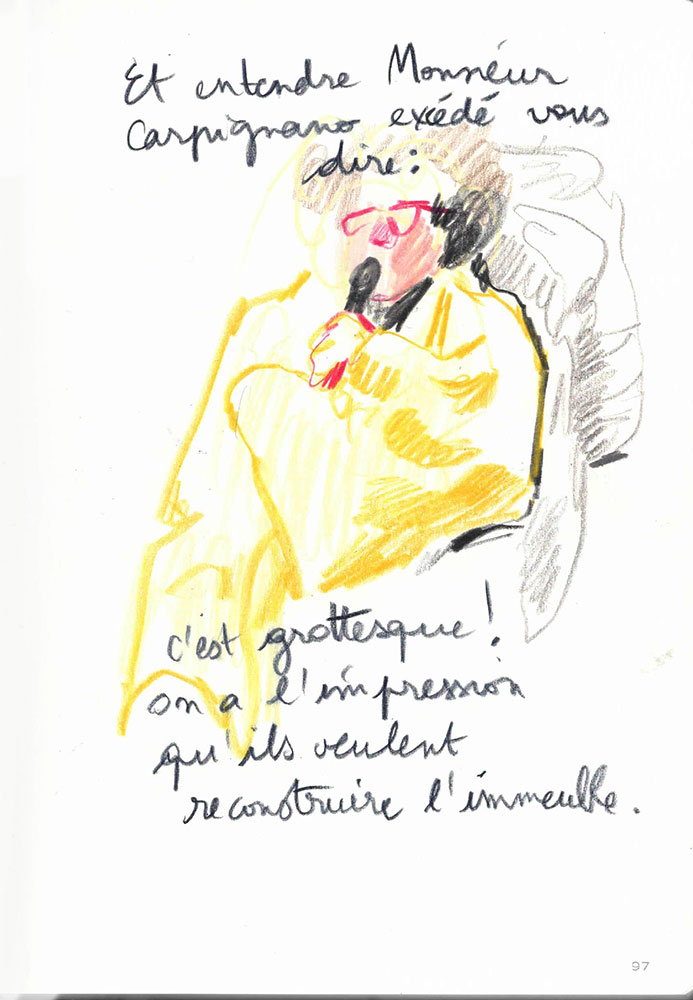 Et entendre Monsieur
Carpignano excédé vous
dire:
c'est grottesque!
on a l'impression
qu'ils veulent
reconstruire l'immeuble.
97